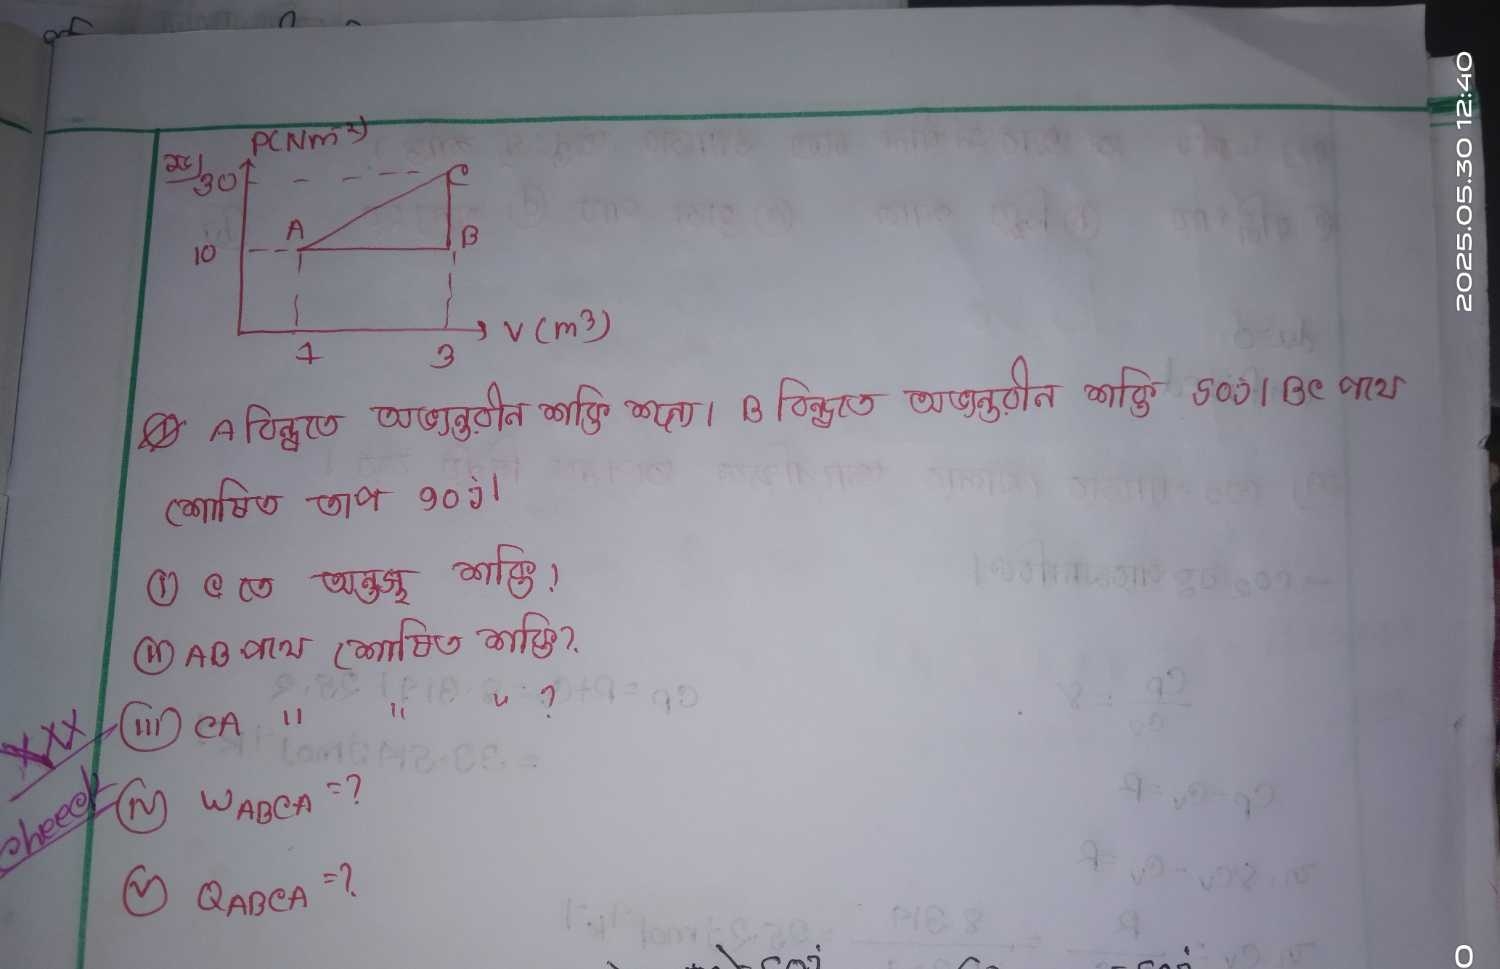 P(Nm⁻²)
30
C
A
10
B
V (m³)
1
3
A বিন্দুতে অভ্যন্তরীন শক্তি শূন্য। B বিন্দুতে অভ্যন্তরীন শক্তি 50J। BC পথে
শোষিত তাপ 90J।
(i) C তে অন্তঃস্থ শক্তি?
(ii) AB পথে শোষিত শক্তি?
(iii) CA " " " ?
(iv) W ABCA =?
(v) Q ABCA =?
XXX
cheeck
2025.05.30 12:40